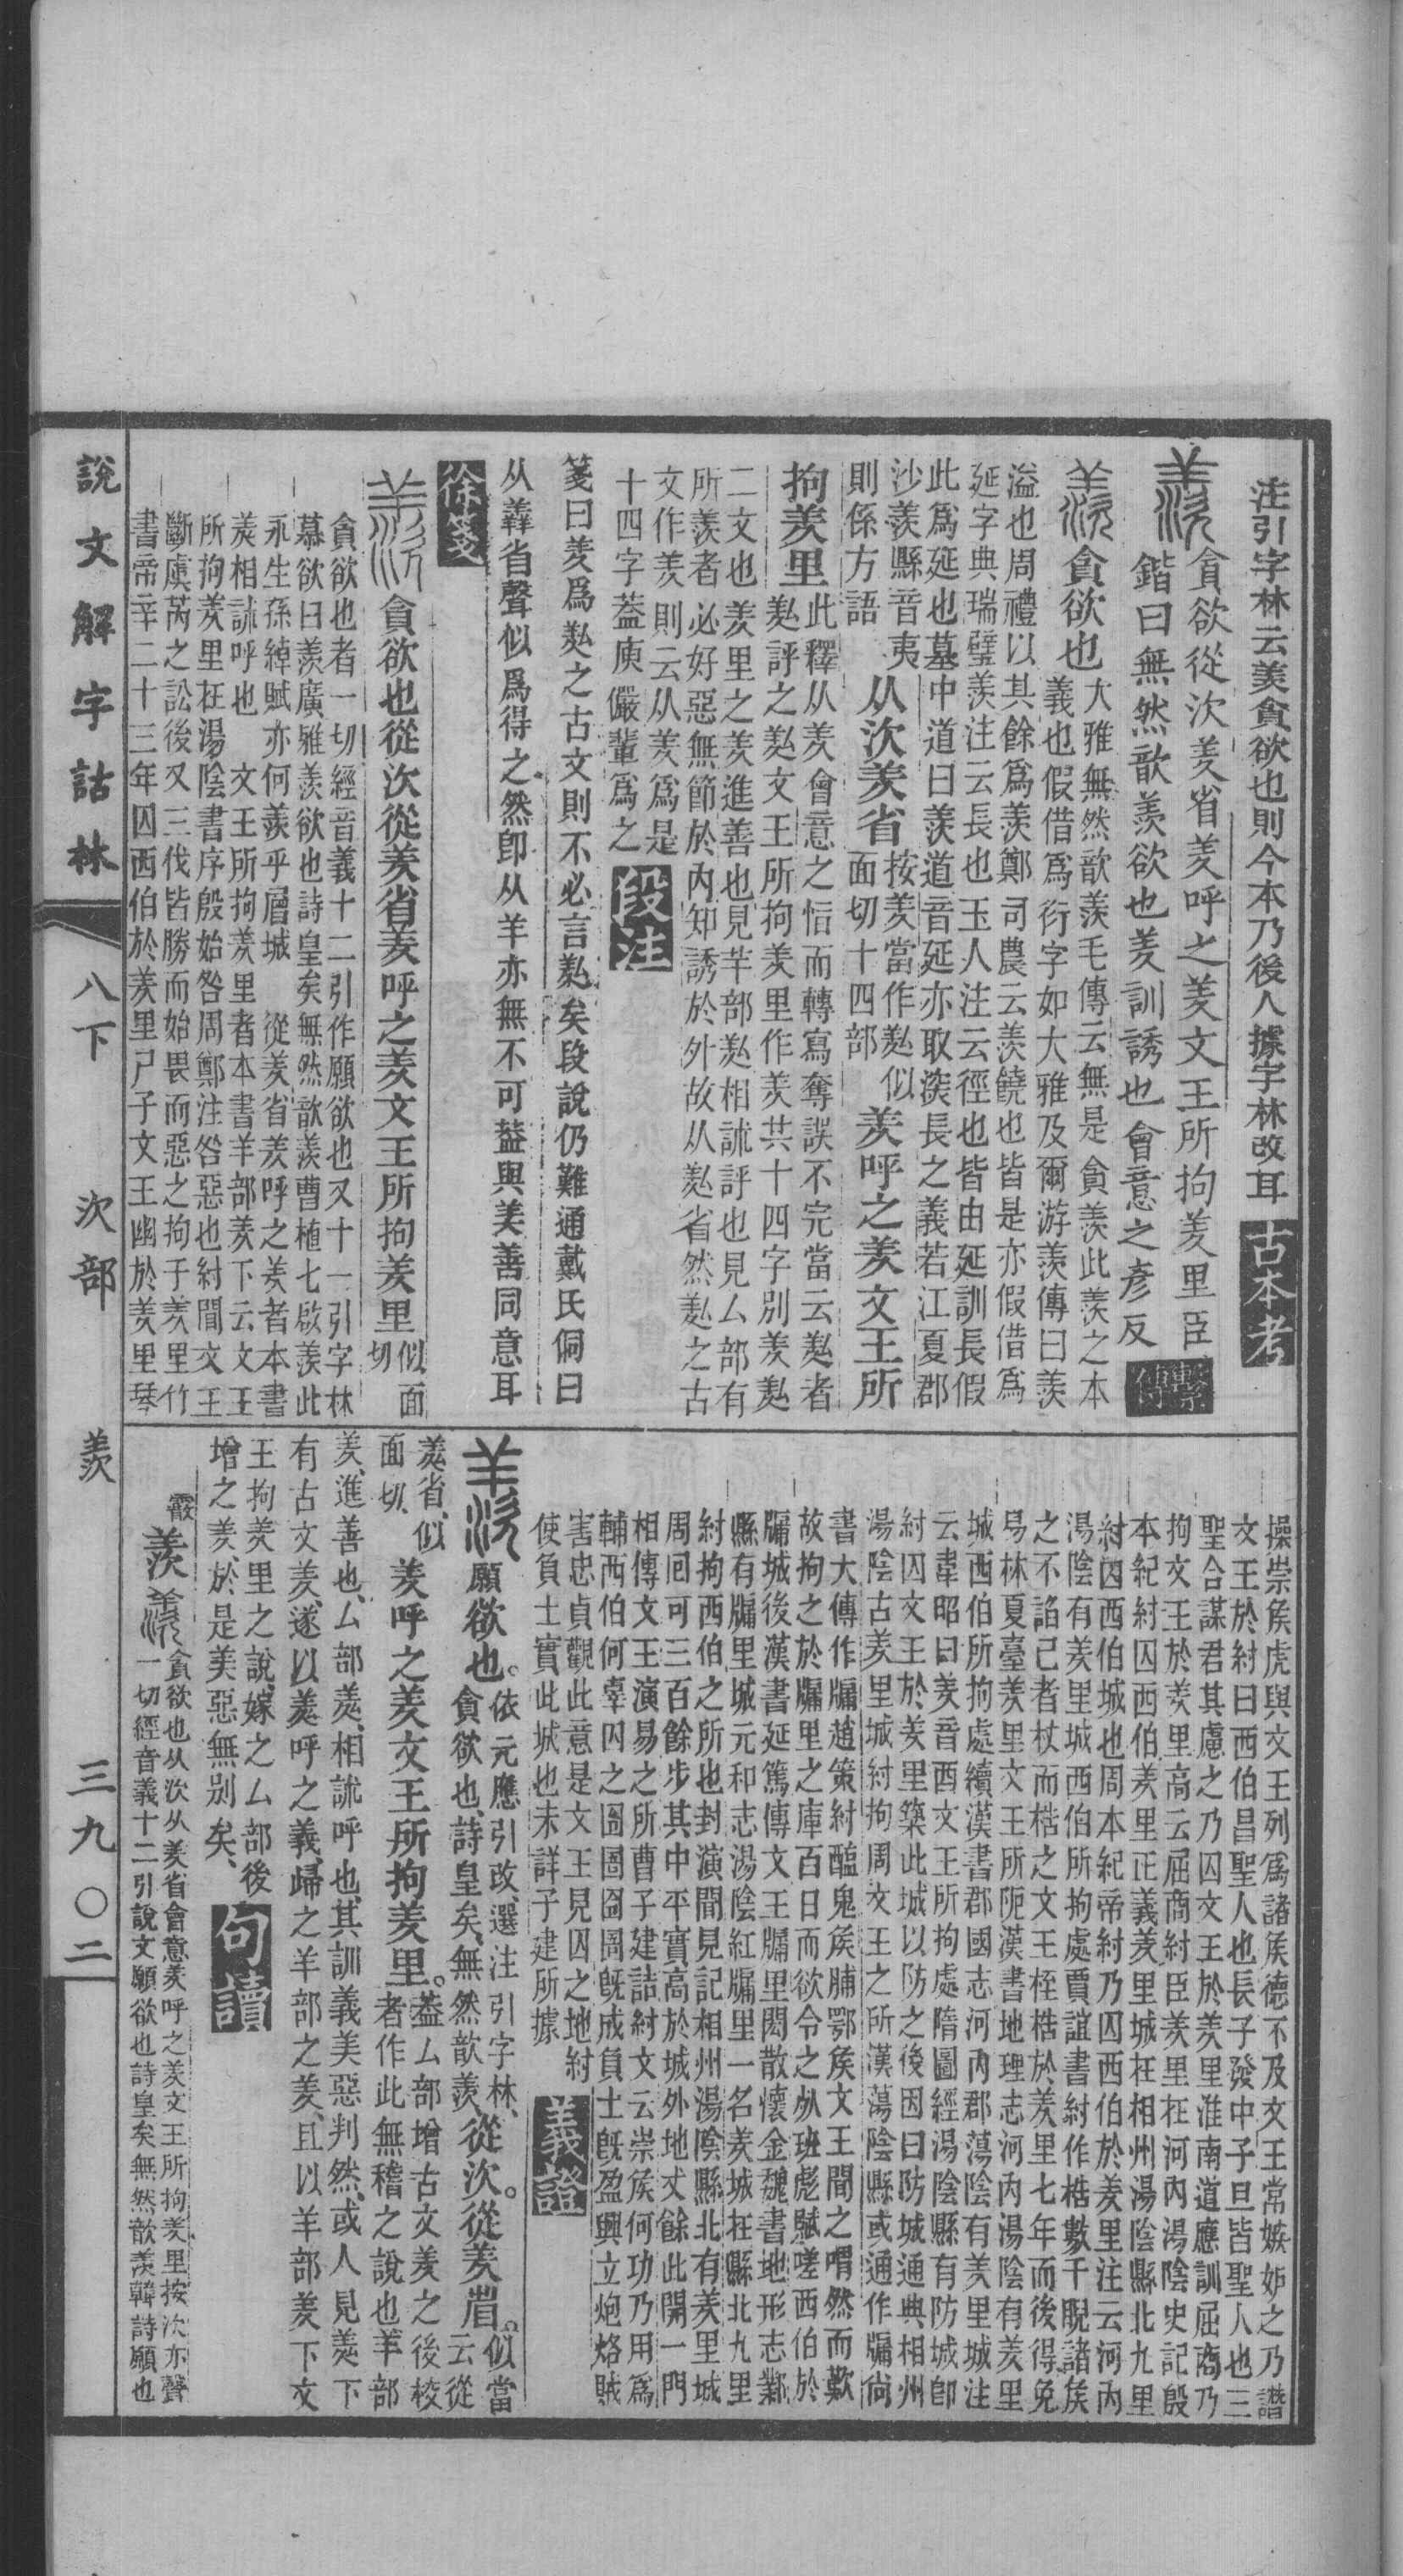 注引字林云羨貪欲也則今本乃後人據字林改耳 古本考
貪欲從㳄羑省羑呼之羑文王所拘羑里臣
鍇曰無然歆羨欲也羑訓誘也會意之彥反 繫傳
貪欲也
大雅無然歆羨毛傳云無是貪羨此羨之本
義也假借爲衍字如大雅及爾游羨傳曰羨
溢也周禮以其餘爲羨鄭司農云羨饒也皆是亦假借爲
延字典瑞璧羨注云長也玉人注云徑也皆由延訓長假
此爲延也墓中道曰羨道音延亦取湠長之義若江夏郡
沙羨縣音夷
則係方語
从㳄羑省
按羑當作䍻似
面切十四部
羑呼之羑文王所
拘羑里
此釋从羑會意之恉而轉寫奪誤不完當云䍻者
䍻評之䍻文王所拘羑里作羑共十四字別羑䍻
二文也羑里之羑進善也見羊部䍻相訹評也見厶部有
所羨者必好惡無節於內知誘於外故从䍻省然䍻之古
文作羑則云从羑爲是
十四字葢庾儼輩爲之
段注
箋曰羑爲䍻之古文則不必言䍻矣段說仍難通戴氏侗曰
从羴省聲似爲得之然卽从羊亦無不可葢與美善同意耳
徐箋
貪欲也從㳄從羑省羑呼之羑文王所拘羑里
似面
切
貪欲也者一切經音義十二引作願欲也又十一引字林
慕欲曰羨廣雅羨欲也詩皇矣無然歆羨曹植七啟羨此
永生孫綽賦亦何羨乎層城　從羑省羑呼之羑者本書
羑相訹呼也　文王所拘羑里者本書羊部羑下云文王
所拘羑里在湯陰書序殷始咎周鄭注咎惡也紂聞文王
斷虞芮之訟後又三伐皆勝而始畏而惡之拘于羑里竹
書帝辛二十三年囚西伯於羑里尸子文王幽於羑里琴
操崇矦虎與文王列爲諸矦德不及文王常嫉妒之乃譖
文王於紂曰西伯昌聖人也長子發中子旦皆聖人也三
聖合謀君其慮之乃囚文王於羑里淮南道應訓屈商乃
拘文王於羑里高云屈商紂臣羑里在河內湯陰史記殷
本紀紂囚西伯羑里正義羑里城在相州湯陰縣北九里
紂囚西伯城也周本紀帝紂乃囚西伯於羑里注云河內
湯陰有羑里城西伯所拘處賈誼書紂作梏數千睨諸矦
之不諂己者杖而梏之文王桎梏於羑里七年而後得免
易林夏臺羑里文王所阨漢書地理志河內湯陰有羑里
城西伯所拘處續漢書郡國志河內郡蕩陰有羑里城注
云韋昭曰羑音酉文王所拘處隋圖經湯陰縣有防城卽
紂囚文王於羑里築此城以防之後因曰防城通典相州
湯陰古羑里城紂拘周文王之所漢蕩陰縣或通作牖尙
書大傳作牖趙策紂醢鬼矦脯鄂矦文王聞之喟然而歎
故拘之於牖里之庫百日而欲令之死班彪賦嗟西伯於
牖城後漢書延篤傳文王牖里閎散懷金魏書地形志鄴
縣有牖里城元和志湯陰紅牖里一名羑城在縣北九里
紂拘西伯之所也封演聞見記相州湯陰縣北有羑里城
周回可三百餘步其中平實高於城外地丈餘此開一門
相傳文王演易之所曹子建詰紂文云崇矦何功乃用爲
輔西伯何辜囚之囹圄囹圄旣成負土旣盈興立炮烙賊
害忠貞觀此意是文王見囚之地紂
使負土實此城也未詳子建所據
義證
願欲也。
依元應引改、選注引字林、
貪欲也、詩皇矣、無然歆羨、
從㳄。從羑省。
似當
云從
羑省、似
面切、
羑呼之羑文王所拘羑里。
葢厶部增古文羑之後校
者作此無稽之說也羊部
羑、進善也、厶部羑、相訹呼也、其訓義美惡判然、或人見羑下
有古文羑、遂以羑呼之義、歸之羊部之羑、且以羊部羑下文
王拘羑里之說、嫁之厶部後
增之羑、於是美惡無別矣、
句讀
羨
貪欲也从㳄从羑省會意羑呼之羑文王所拘羑里按㳄亦聲
一切經音義十二引說文願欲也詩皇矣無然歆羨韓詩願也
說文解字詁林
八下　㳄部　羨
三九〇二